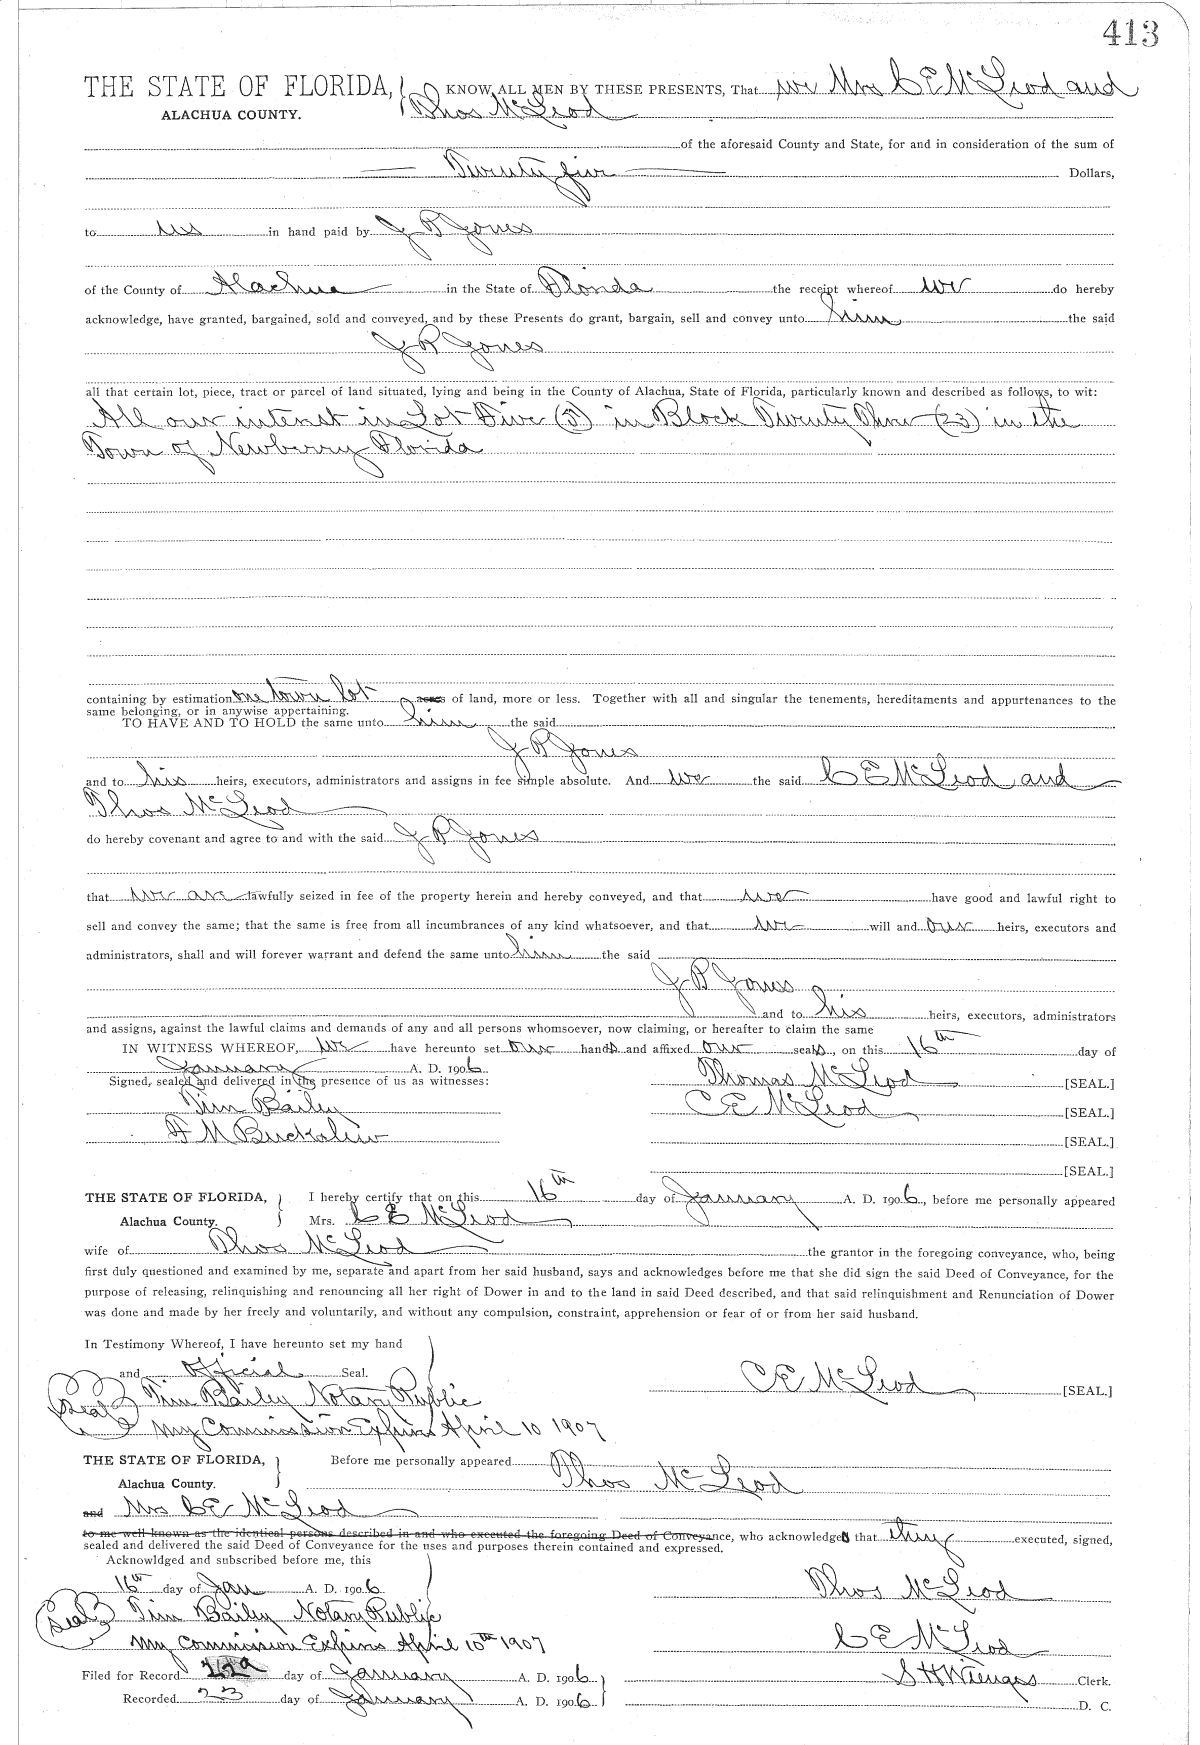 413
THE STATE OF FLORIDA, } KNOW ALL MEN BY THESE PRESENTS, That we Mrs C E McLeod and
ALACHUA COUNTY. Thos McLeod
of the aforesaid County and State, for and in consideration of the sum of
Twenty five Dollars,
to us in hand paid by J P Jones
of the County of Alachua in the State of Florida the receipt whereof we do hereby
acknowledge, have granted, bargained, sold and conveyed, and by these Presents do grant, bargain, sell and convey unto him the said
J P Jones
all that certain lot, piece, tract or parcel of land situated, lying and being in the County of Alachua, State of Florida, particularly known and described as follows, to wit:
All our interest in Lot Five (5) in Block Twenty Three (23) in the
Town of Newberry Florida
containing by estimation one town lot acres of land, more or less. Together with all and singular the tenements, hereditaments and appurtenances to the
same belonging, or in anywise appertaining.
TO HAVE AND TO HOLD the same unto him the said
J P Jones
and to his heirs, executors, administrators and assigns in fee simple absolute. And we the said C E McLeod and
Thos McLeod
do hereby covenant and agree to and with the said J P Jones
that we are lawfully seized in fee of the property herein and hereby conveyed, and that we have good and lawful right to
sell and convey the same; that the same is free from all incumbrances of any kind whatsoever, and that we will and our heirs, executors and
administrators, shall and will forever warrant and defend the same unto him the said
J P Jones
and to his heirs, executors, administrators
and assigns, against the lawful claims and demands of any and all persons whomsoever, now claiming, or hereafter to claim the same
IN WITNESS WHEREOF, we have hereunto set our hands and affixed our seals, on this 16th day of
January A. D. 1906
Signed, sealed and delivered in the presence of us as witnesses: Thomas McLeod [SEAL.]
Tim Bailey C E McLeod [SEAL.]
F M Buckalew [SEAL.]
[SEAL.]
THE STATE OF FLORIDA, } I hereby certify that on this 16th day of January A. D. 1906, before me personally appeared
Alachua County. Mrs. C E McLeod
wife of Thos McLeod the grantor in the foregoing conveyance, who, being
first duly questioned and examined by me, separate and apart from her said husband, says and acknowledges before me that she did sign the said Deed of Conveyance, for the
purpose of releasing, relinquishing and renouncing all her right of Dower in and to the land in said Deed described, and that said relinquishment and Renunciation of Dower
was done and made by her freely and voluntarily, and without any compulsion, constraint, apprehension or fear of or from her said husband.
In Testimony Whereof, I have hereunto set my hand
and Official Seal. C E McLeod [SEAL.]
Seal Tim Bailey Notary Public
My Commission Expires April 10 1907
THE STATE OF FLORIDA, } Before me personally appeared Thos McLeod
Alachua County.
and Mrs C E McLeod
to me well known as the identical persons described in and who executed the foregoing Deed of Conveyance, who acknowledged that they executed, signed,
sealed and delivered the said Deed of Conveyance for the uses and purposes therein contained and expressed.
Acknowldged and subscribed before me, this
16th day of Jan A. D. 1906 Thos McLeod
Seal Tim Bailey Notary Public
My Commission Expires April 10th 1907 C E McLeod
Filed for Record day of January A. D. 1906 S H Wienges Clerk.
Recorded 23 day of January A. D. 1906 D. C.